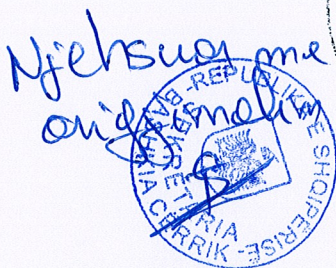 Njehsuar me
origjinalin
REPUBLIKA E SHQIPËRISË
BASHKIA CËRRIK
SEKRETARIA